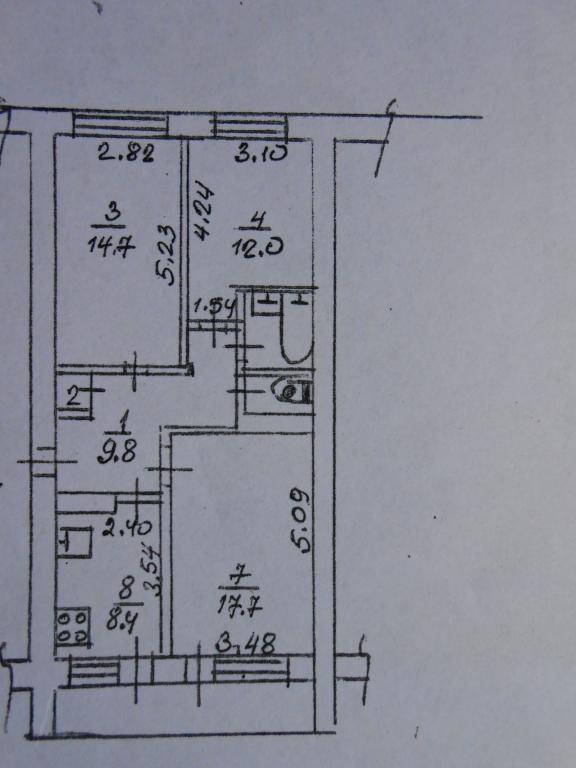 2.82
3.10
3
14.7
5.23
4.24
4
12.0
1.54
2
1
9.8
2.40
3.54
8
8.4
5.09
7
17.7
3.48